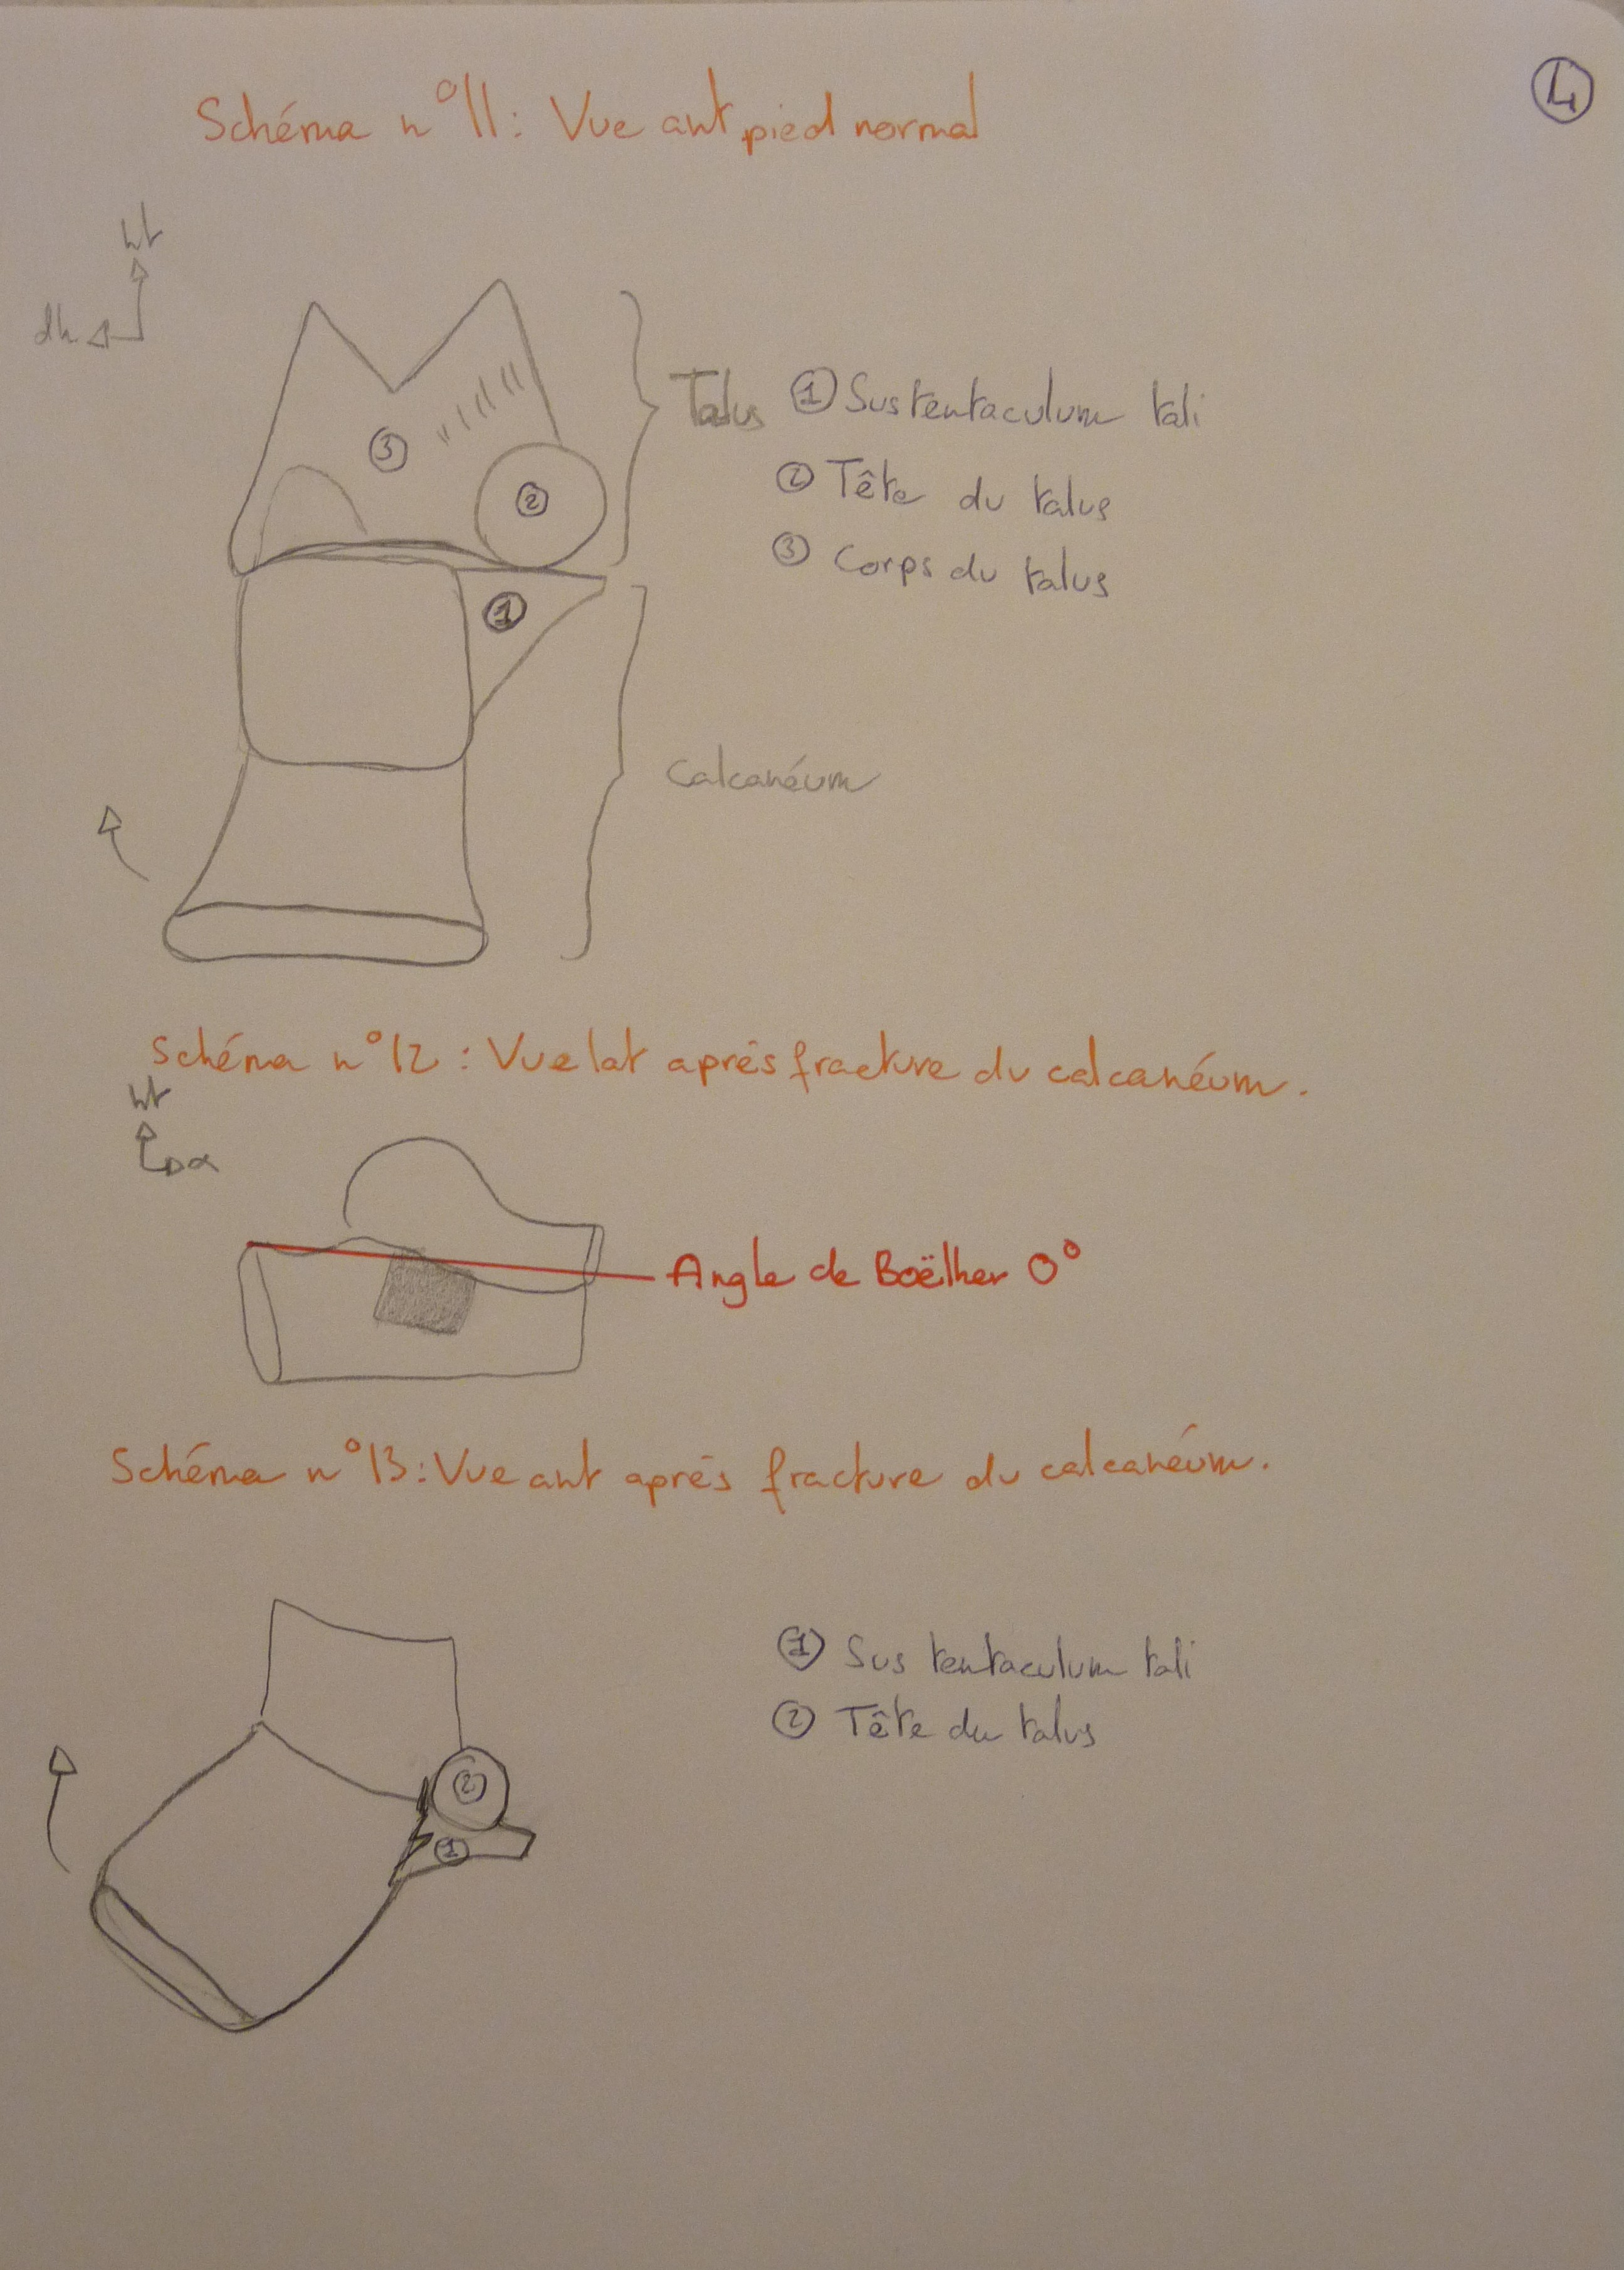 Schéma n°11 : Vue ant pied normal
4
ht
dh
Talus
① Sustentaculum tali
② Tête du talus
③ Corps du talus
③
②
①
Calcanéum
Schéma n°12 : Vue lat après fracture du calcanéum.
ht
Angle de Boëlher 0°
Schéma n°13 : Vue ant après fracture du calcanéum.
① Sustentaculum tali
② Tête du talus
②
①